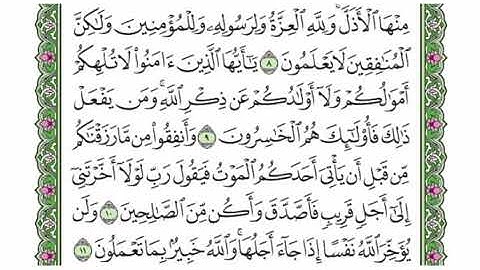 مِنْهَا ٱلْأَذَلَّ ۚ وَلِلَّهِ ٱلْعِزَّةُ وَلِرَسُولِهِۦ وَلِلْمُؤْمِنِينَ وَلَٰكِنَّ
ٱلْمُنَٰفِقِينَ لَا يَعْلَمُونَ ٨ يَٰٓأَيُّهَا ٱلَّذِينَ ءَامَنُوا۟ لَا تُلْهِكُمْ
أَمْوَٰلُكُمْ وَلَآ أَوْلَٰدُكُمْ عَن ذِكْرِ ٱللَّهِ ۚ وَمَن يَفْعَلْ
ذَٰلِكَ فَأُو۟لَٰٓئِكَ هُمُ ٱلْخَٰسِرُونَ ٩ وَأَنفِقُوا۟ مِن مَّا رَزَقْنَٰكُم
مِّن قَبْلِ أَن يَأْتِىَ أَحَدَكُمُ ٱلْمَوْتُ فَيَقُولَ رَبِّ لَوْلَآ أَخَّرْتَنِىٓ
إِلَىٰٓ أَجَلٍ قَرِيبٍ فَأَصَّدَّقَ وَأَكُن مِّنَ ٱلصَّٰلِحِينَ ١٠ وَلَن
يُؤَخِّرَ ٱللَّهُ نَفْسًا إِذَا جَآءَ أَجَلُهَا ۚ وَٱللَّهُ خَبِيرٌۢ بِمَا تَعْمَلُونَ ١١